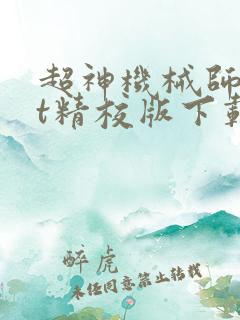 超神機械師
t精校版下載
醉虎
未经同意禁止转载